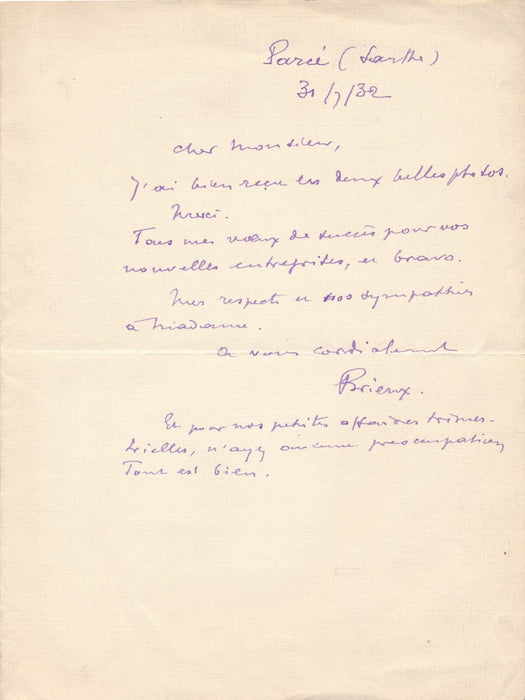 Parcé (Sarthe)
31/7/32
cher Monsieur,
J'ai bien reçu les deux belles photos.
Merci.
Tous mes vœux de succès pour vos
nouvelles entreprises, et bravo.
Mes respects et nos sympathies
à Madame.
A vous cordialement
Brieux.
Et pour nos petites affaires trimes-
trielles, n'ayez aucune préoccupation,
Tout est bien.